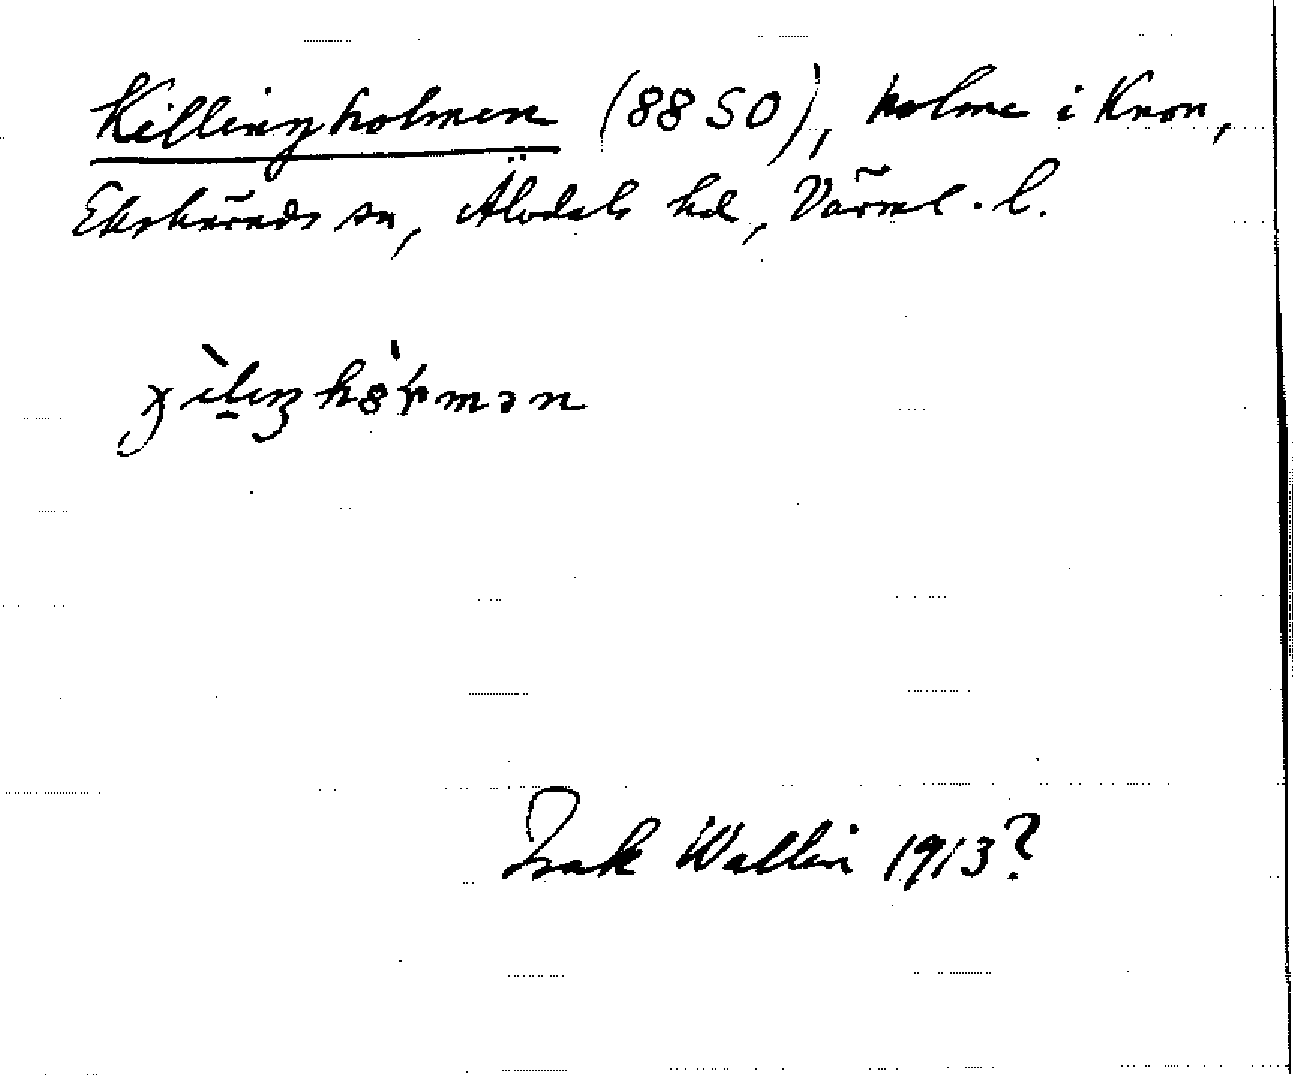 Killingholmen (8850), holme i Knon,
Ekshärads sn, Älvdals hd, Värml. l.
Isak Wallin 1913?